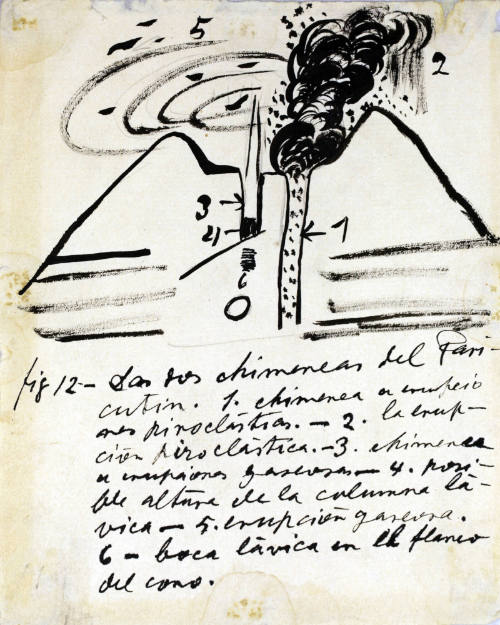 5
2
3
4
1
6
fig 12 - Las dos chimeneas del Pari-
cutin. 1. chimenea a erupcio
nes piroclásticas. - 2. la erup-
ción piroclástica. - 3. chimenea
a erupciones gaseosas - 4. posi-
ble altura de la columna lá-
vica - 5. erupción gaseosa.
6 - boca lávica en el flanco
del cono.